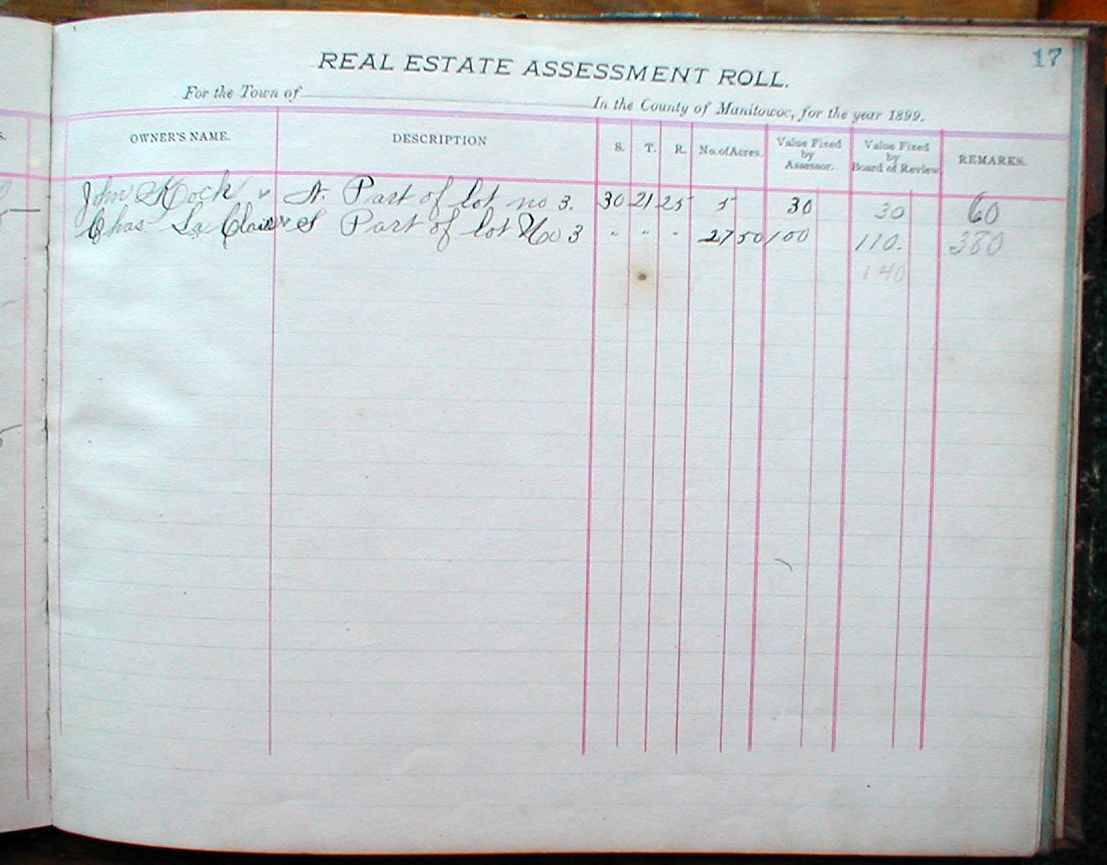 17
REAL ESTATE ASSESSMENT ROLL.
For the Town of In the County of Manitowoc, for the year 1899.
OWNER'S NAME. DESCRIPTION S. T. R. No. of Acres. Value Fixed by Assessor. Value Fixed by Board of Review REMARKS.
John Kock N. Part of lot no 3. 30 21 25 5 30 30 60
Chas La Clair S Part of lot No 3 " " " 27 50 100 110. 380
140